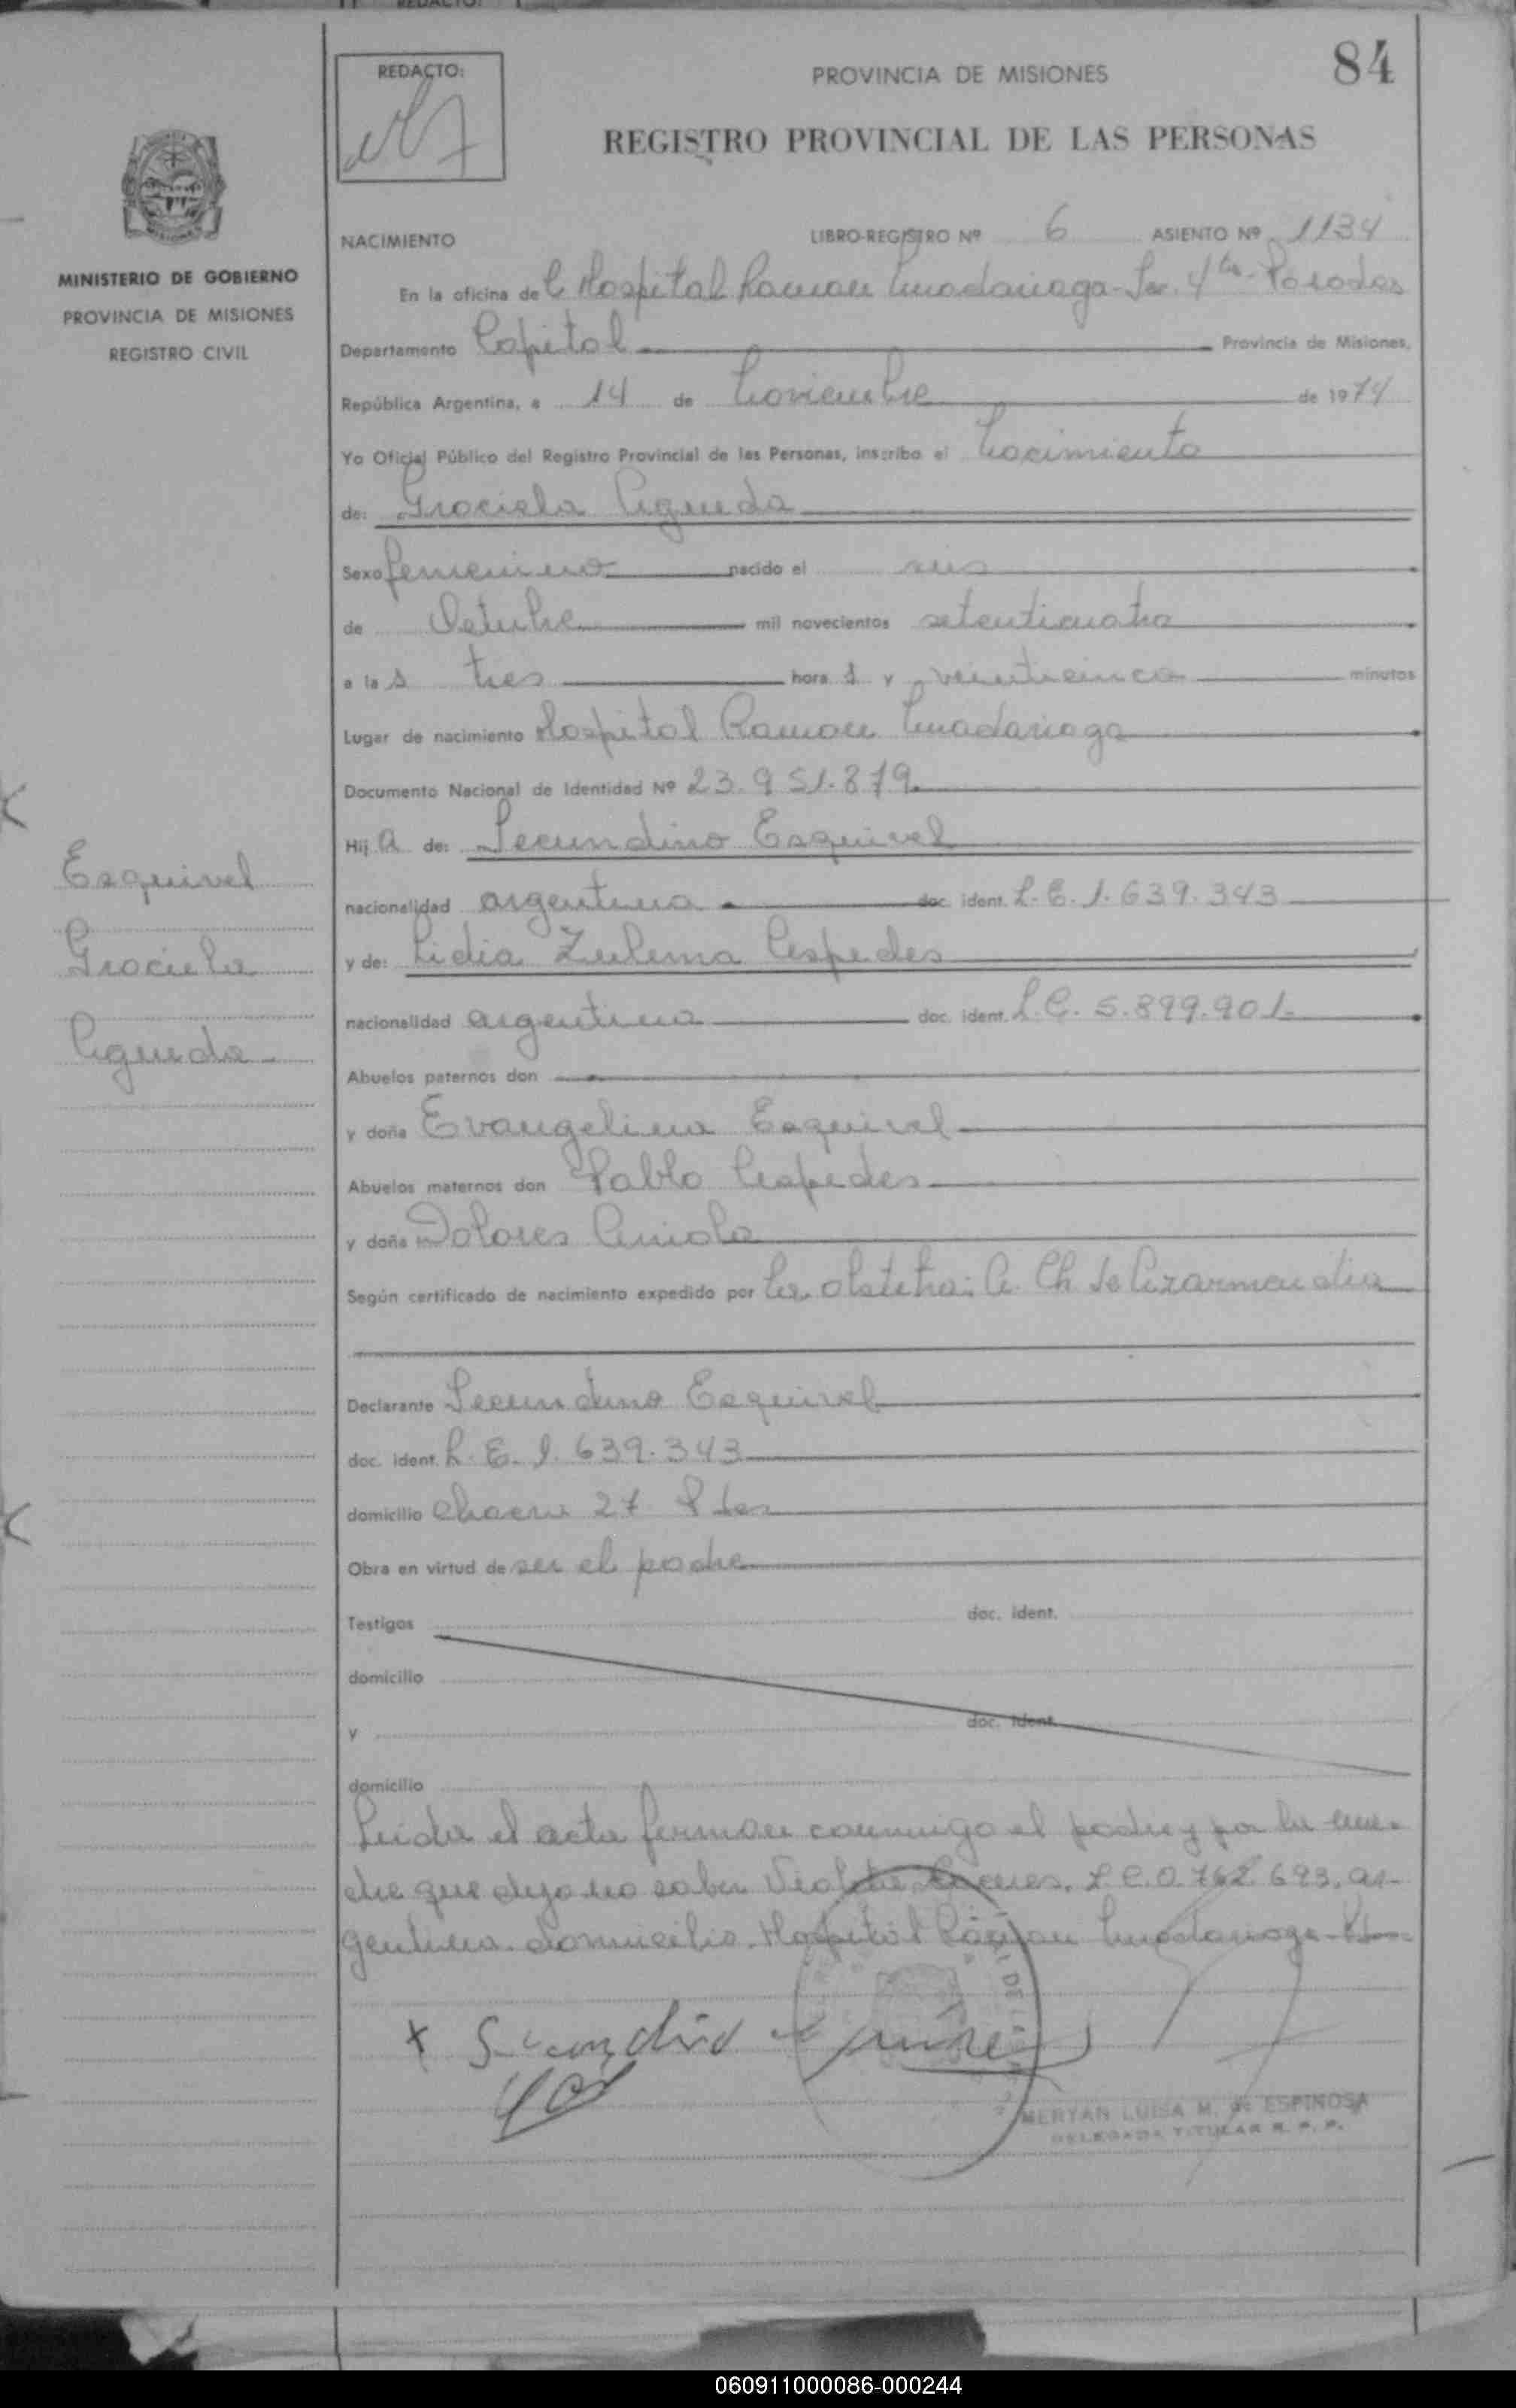 REDACTO:
PROVINCIA DE MISIONES
84
REGISTRO PROVINCIAL DE LAS PERSONAS
MINISTERIO DE GOBIERNO
PROVINCIA DE MISIONES
REGISTRO CIVIL
NACIMIENTO LIBRO-REGISTRO Nº 6 ASIENTO Nº 1134
En la oficina de Hospital Ramon Madariaga - Sec. 4ta - Posadas
Departamento Capital Provincia de Misiones,
República Argentina, a 14 de Noviembre de 1974
Yo Oficial Público del Registro Provincial de las Personas, inscribo el Nacimiento
de: Graciela Agueda
Sexo femenino nacido el seis
de Octubre mil novecientos setenticuatro
a las tres horas y veinticinco minutos
Lugar de nacimiento Hospital Ramon Madariaga
Documento Nacional de Identidad Nº 23.951.879
Hija de: Secundino Esquivel
nacionalidad argentina doc. ident. L.E. 1.639.343
y de: Lidia Zulema Cespedes
nacionalidad argentina doc. ident. L.C. 5.899.901
Abuelos paternos don
y doña Evangelina Esquivel
Abuelos maternos don Pablo Cespedes
y doña Dolores
Según certificado de nacimiento expedido por la obstetra: A. Ch de Azarmendia
Declarante Secundino Esquivel
doc. ident. L.E. 1.639.343
domicilio Chacra 27 Pdas
Obra en virtud de ser el padre
Testigos doc. ident.
domicilio
y doc. ident.
domicilio
Leida el acta firman conmigo el padre y por la ma-
dre que dijo no saber Violeta L.C. 0.762.693, ar-
gentina. domicilio. Hospital Ramon Madariaga - Pdas
Esquivel
Graciela
Agueda
MERYAN LUISA M. de ESPINOSA
DELEGADA TITULAR R. P. P.
060911000086-000244